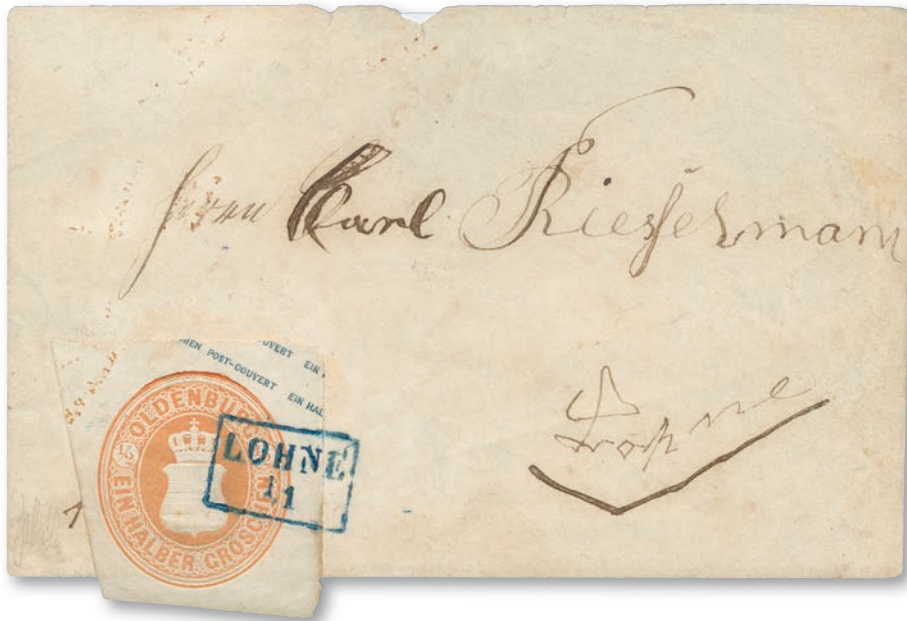 Herrn Karl Kiesselmann
Lohne
EN POST-COUVERT
VERT EIN
EIN HAL
OLDENBURG
1/2
EIN HALBER GROSCHEN
LOHNE
1/1